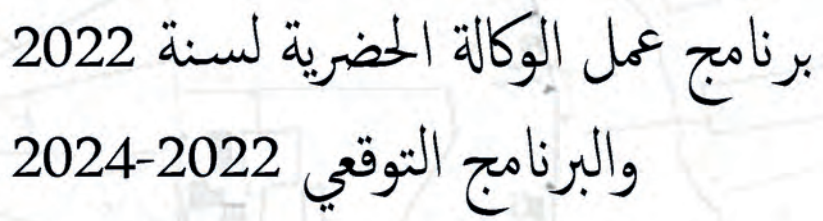 برنامج عمل الوكالة الحضرية لسنة 2022
والبرنامج التوقعي 2022-2024